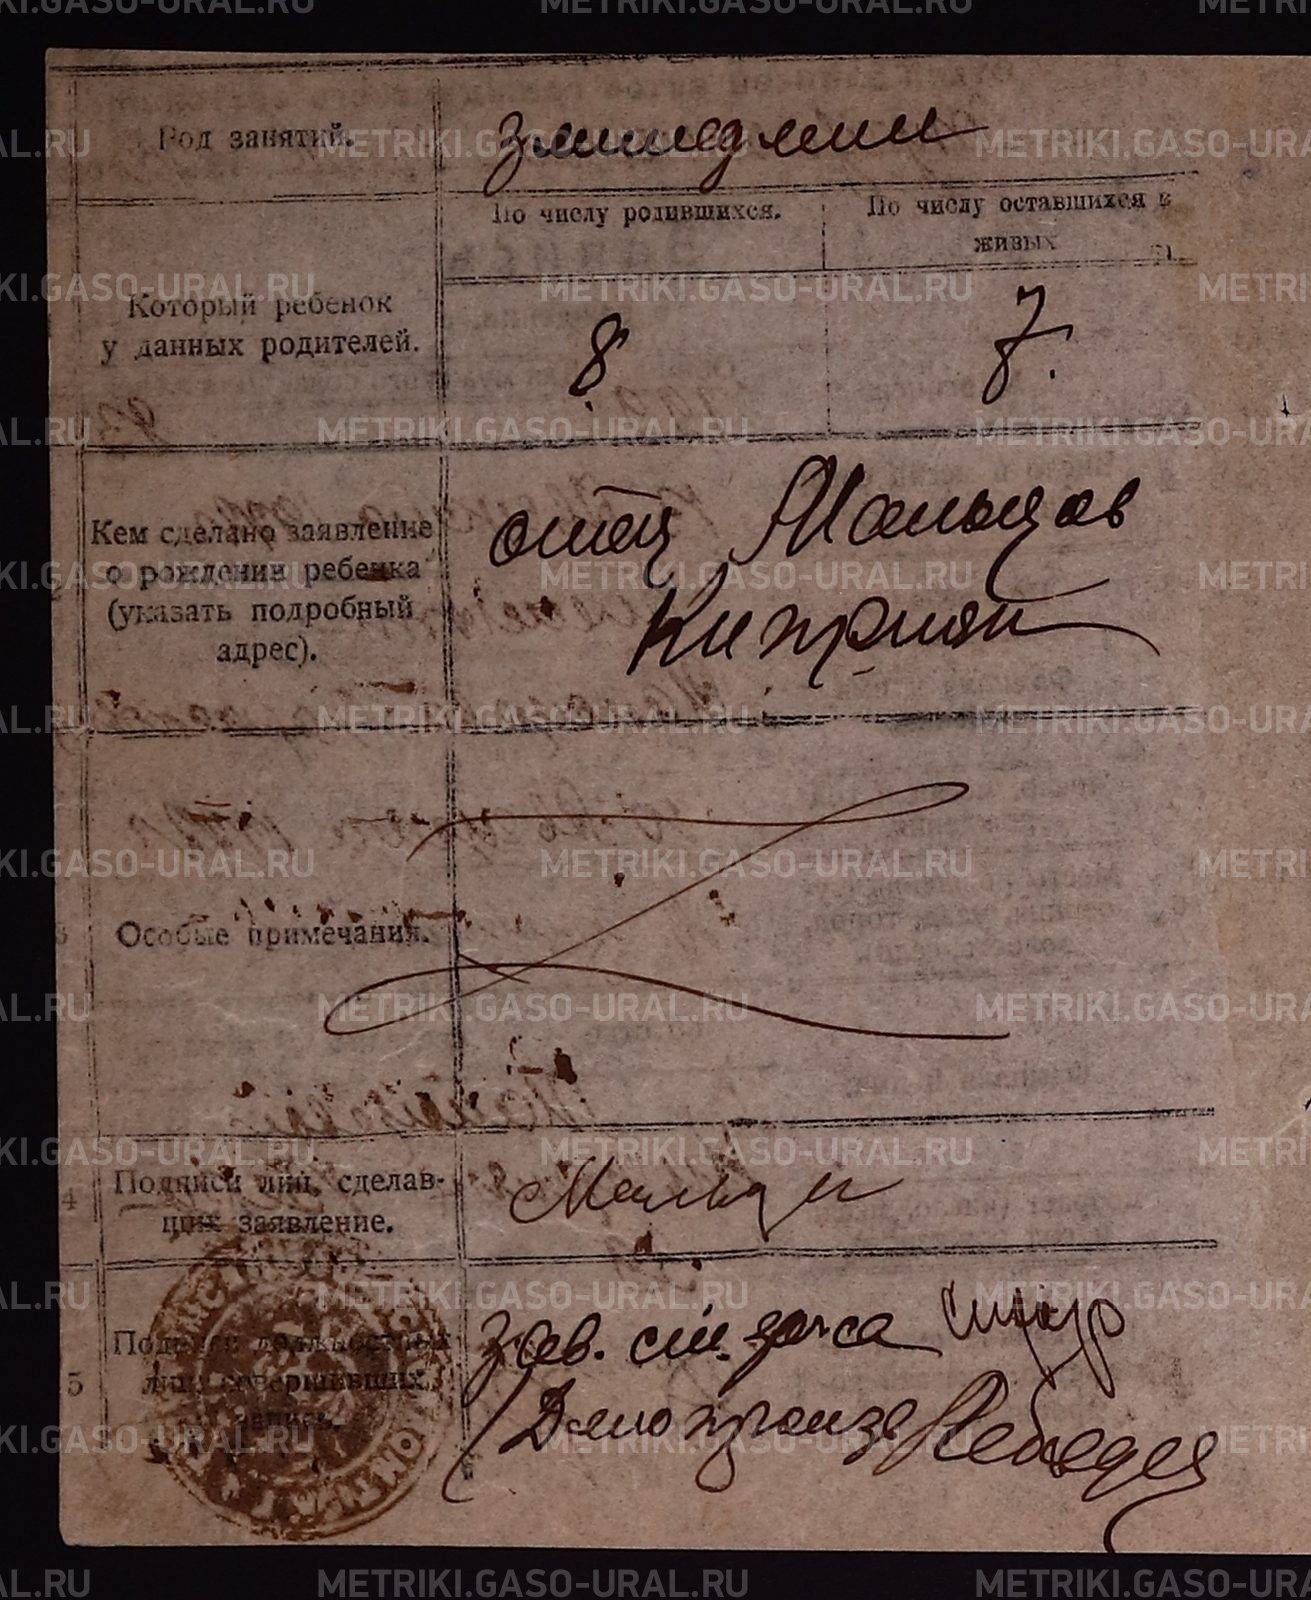 Род занятий.
По числу родившихся.
По числу оставшихся в
живых
Который ребенок
у данных родителей.
8.
7.
Кем сделано заявление
о рождении ребенка
(указать подробный
адрес).
отец Мальцов
Киприян
3
Особые примечания.
4
Подписи лиц, сделав-
щих заявление.
Мальц
5
Подписи должностных
лиц совершивших
запись.
Зав. ст. загса
Делопроизв Лебедев
METRIKI.GASO-URAL.RU